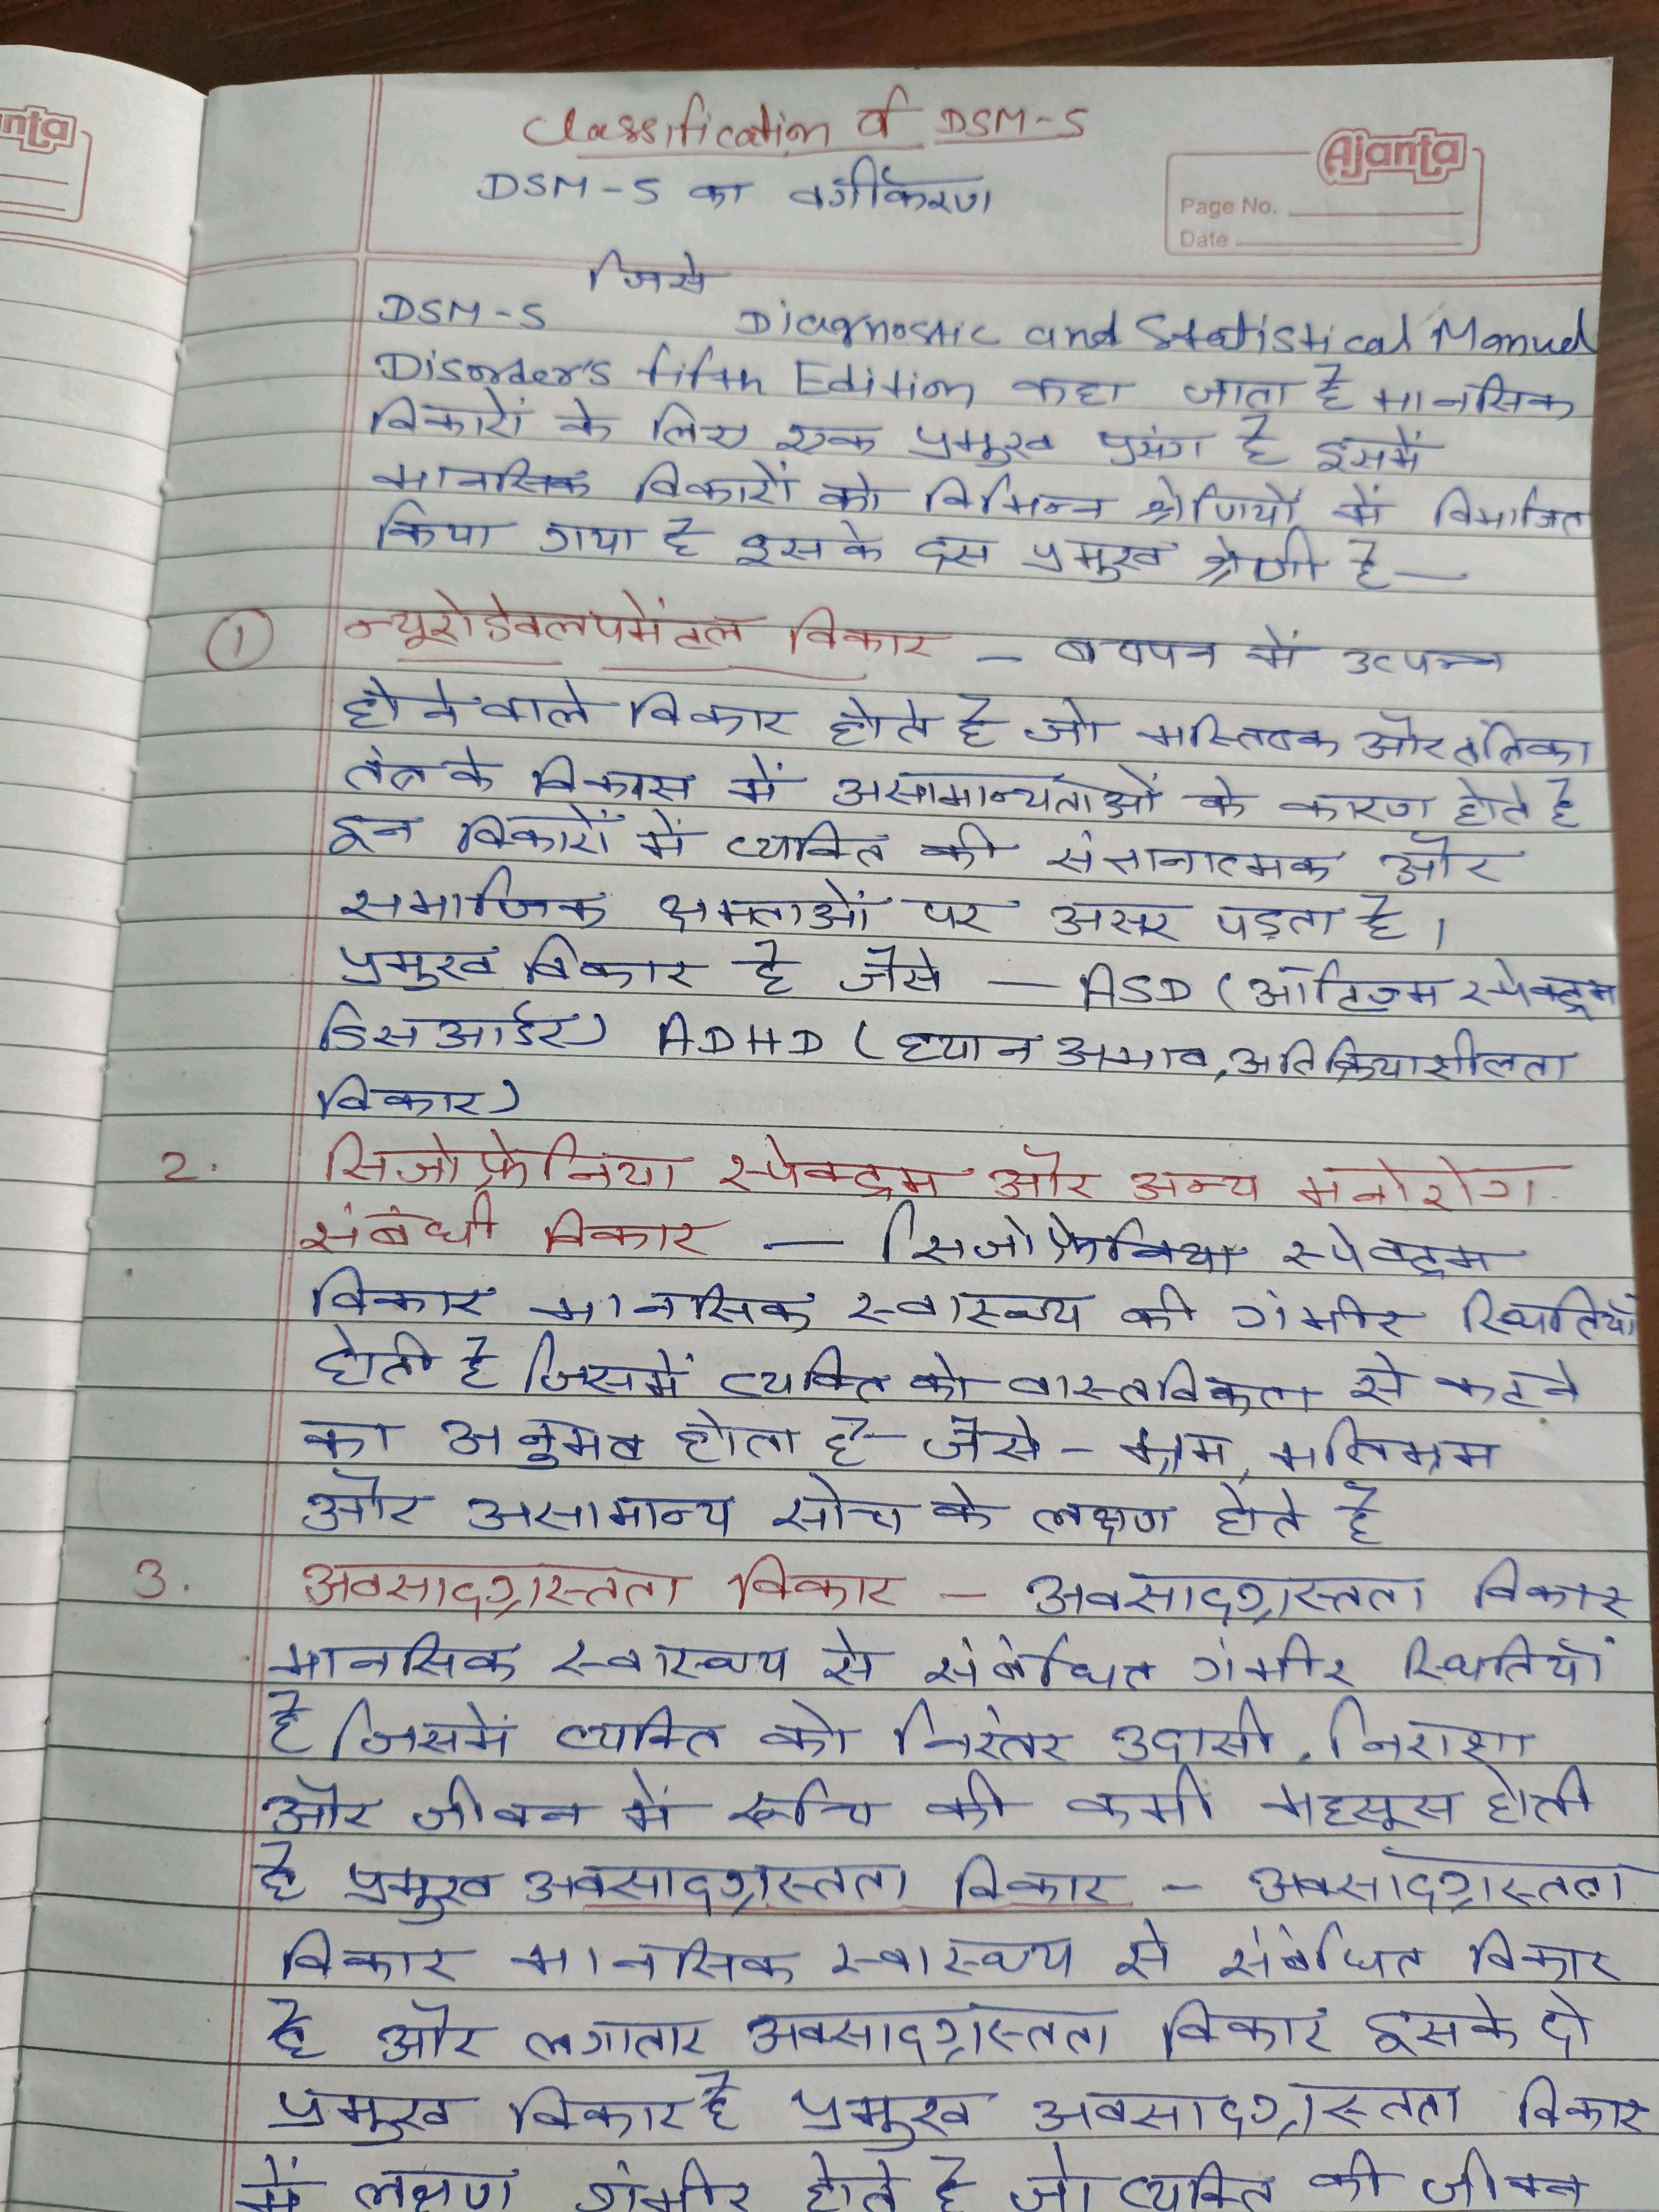 Classification of DSM-5
DSM-5 का वर्गीकरण
Ajanta
Page No.
Date
जिसे
DSM-5 Diagnostic and Statistical Manuel
Disorder's fifth Edition कहा जाता है मानसिक
विकारों के लिए एक प्रमुख प्रसंग है इसमें
मानसिक विकारों को विभिन्न श्रेणियों में विभाजित
किया गया है इसके दस प्रमुख श्रेणी है —
1 न्यूरोडेवलपमेंटल विकार — बचपन में उत्पन्न
होने वाले विकार होते है जो मस्तिष्क और तंत्रिका
तंत्र के विकास में असामान्यताओं के कारण होते है
इन विकारों में व्यक्ति की संज्ञानात्मक और
समाजिक क्षमताओं पर असर पड़ता है।
प्रमुख विकार है जैसे — ASD (ऑटिज्म स्पेक्ट्रम
डिसआर्डर) ADHD (ध्यान अभाव, अतिक्रियाशीलता
विकार)
2. सिजोफ्रेनिया स्पेक्ट्रम और अन्य मनोरोग
संबंधी विकार — सिजोफ्रेनिया स्पेक्ट्रम
विकार मानसिक स्वास्थ्य की गंभीर स्थितियाँ
होती है जिसमें व्यक्ति को वास्तविकता से कटने
का अनुभव होता है — जैसे - भ्रम, मतिभ्रम
और असामान्य सोच के लक्षण होते है
3. अवसादग्रस्तता विकार — अवसादग्रस्तता विकार
मानसिक स्वास्थ्य से संबंधित गंभीर स्थितियाँ
है जिसमें व्यक्ति को निरंतर उदासी, निराशा
और जीवन में रूचि की कमी महसूस होती
है प्रमुख अवसादग्रस्तता विकार — अवसादग्रस्तता
विकार मानसिक स्वास्थ्य से संबंधित विकार
है और लगातार अवसादग्रस्तता विकार इसके दो
प्रमुख विकार है प्रमुख अवसादग्रस्तता विकार
में लक्षण गंभीर होते है जो व्यक्ति की जीवन